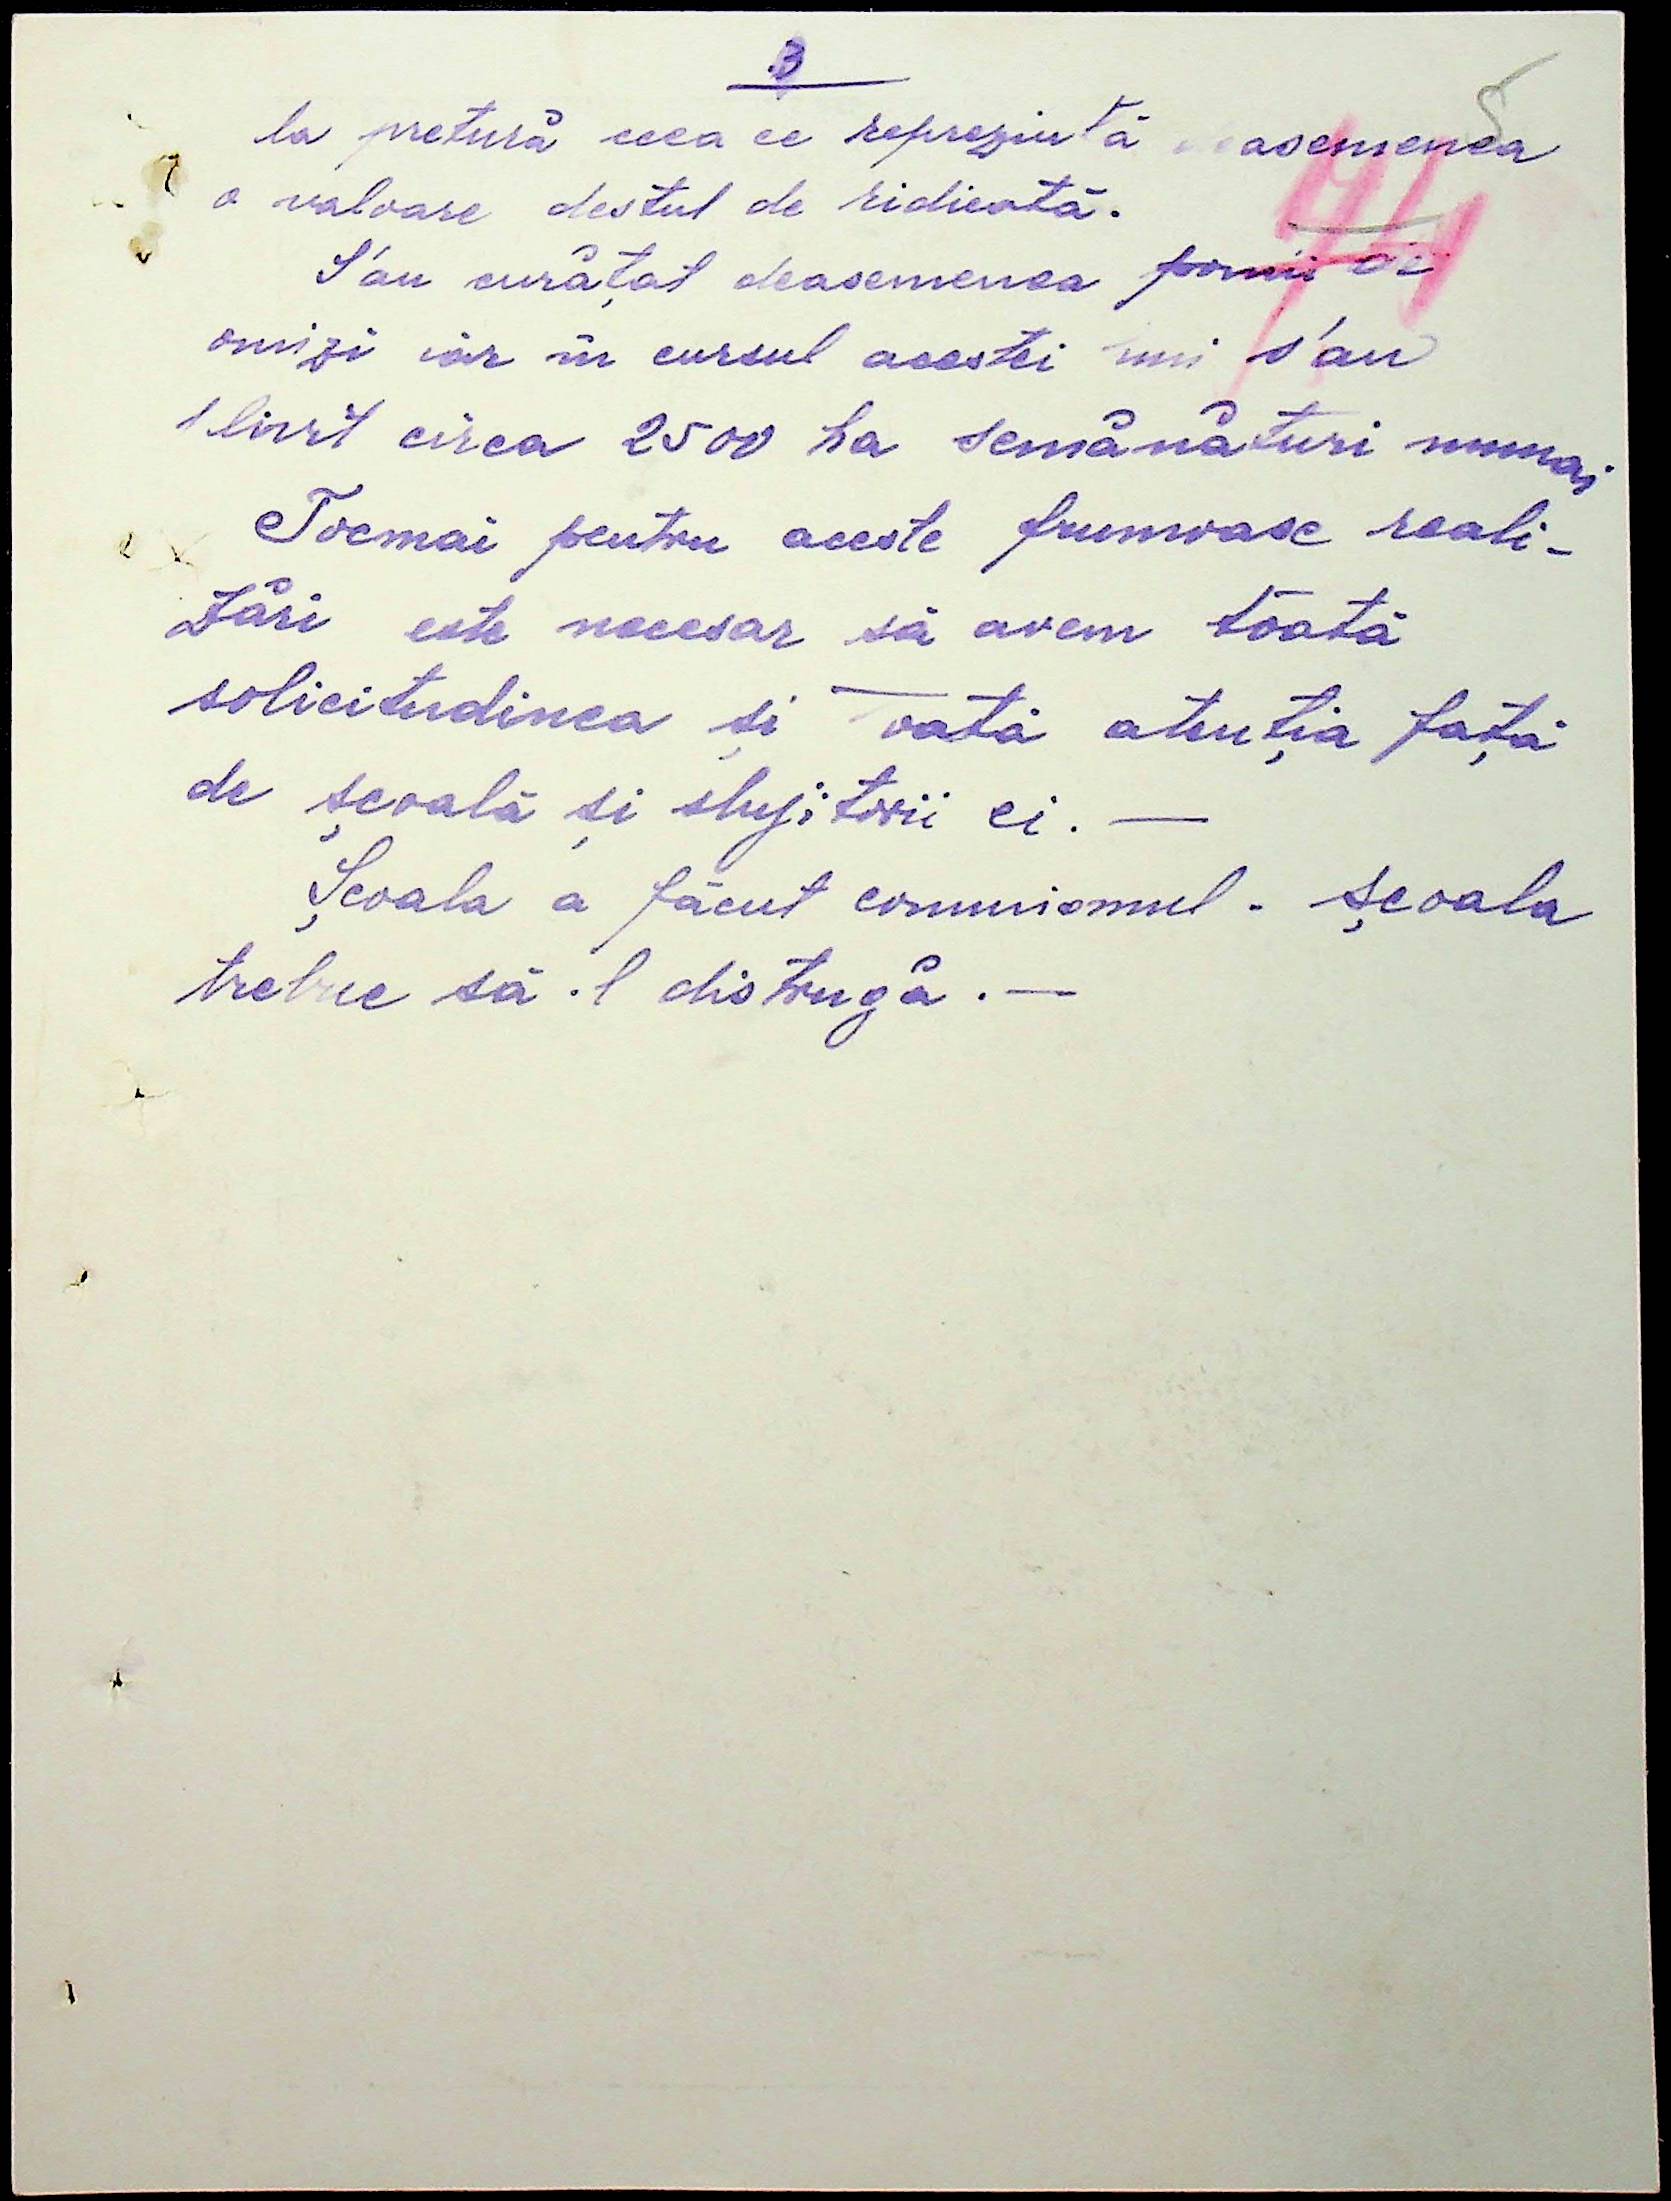 3
la pretură ceea ce reprezintă deasemenea
o valoare destul de ridicată.
S'au curățat deasemenea pomii de
omizi iar în cursul acestei luni s'au
plivit circa 2500 ha semănături numai
Tocmai pentru aceste frumoase reali-
zări este necesar să avem toată
solicitudinea și toată atenția față
de școală și slujitorii ei. —
Școala a făcut comunismul - școala
trebue să-l distrugă. —